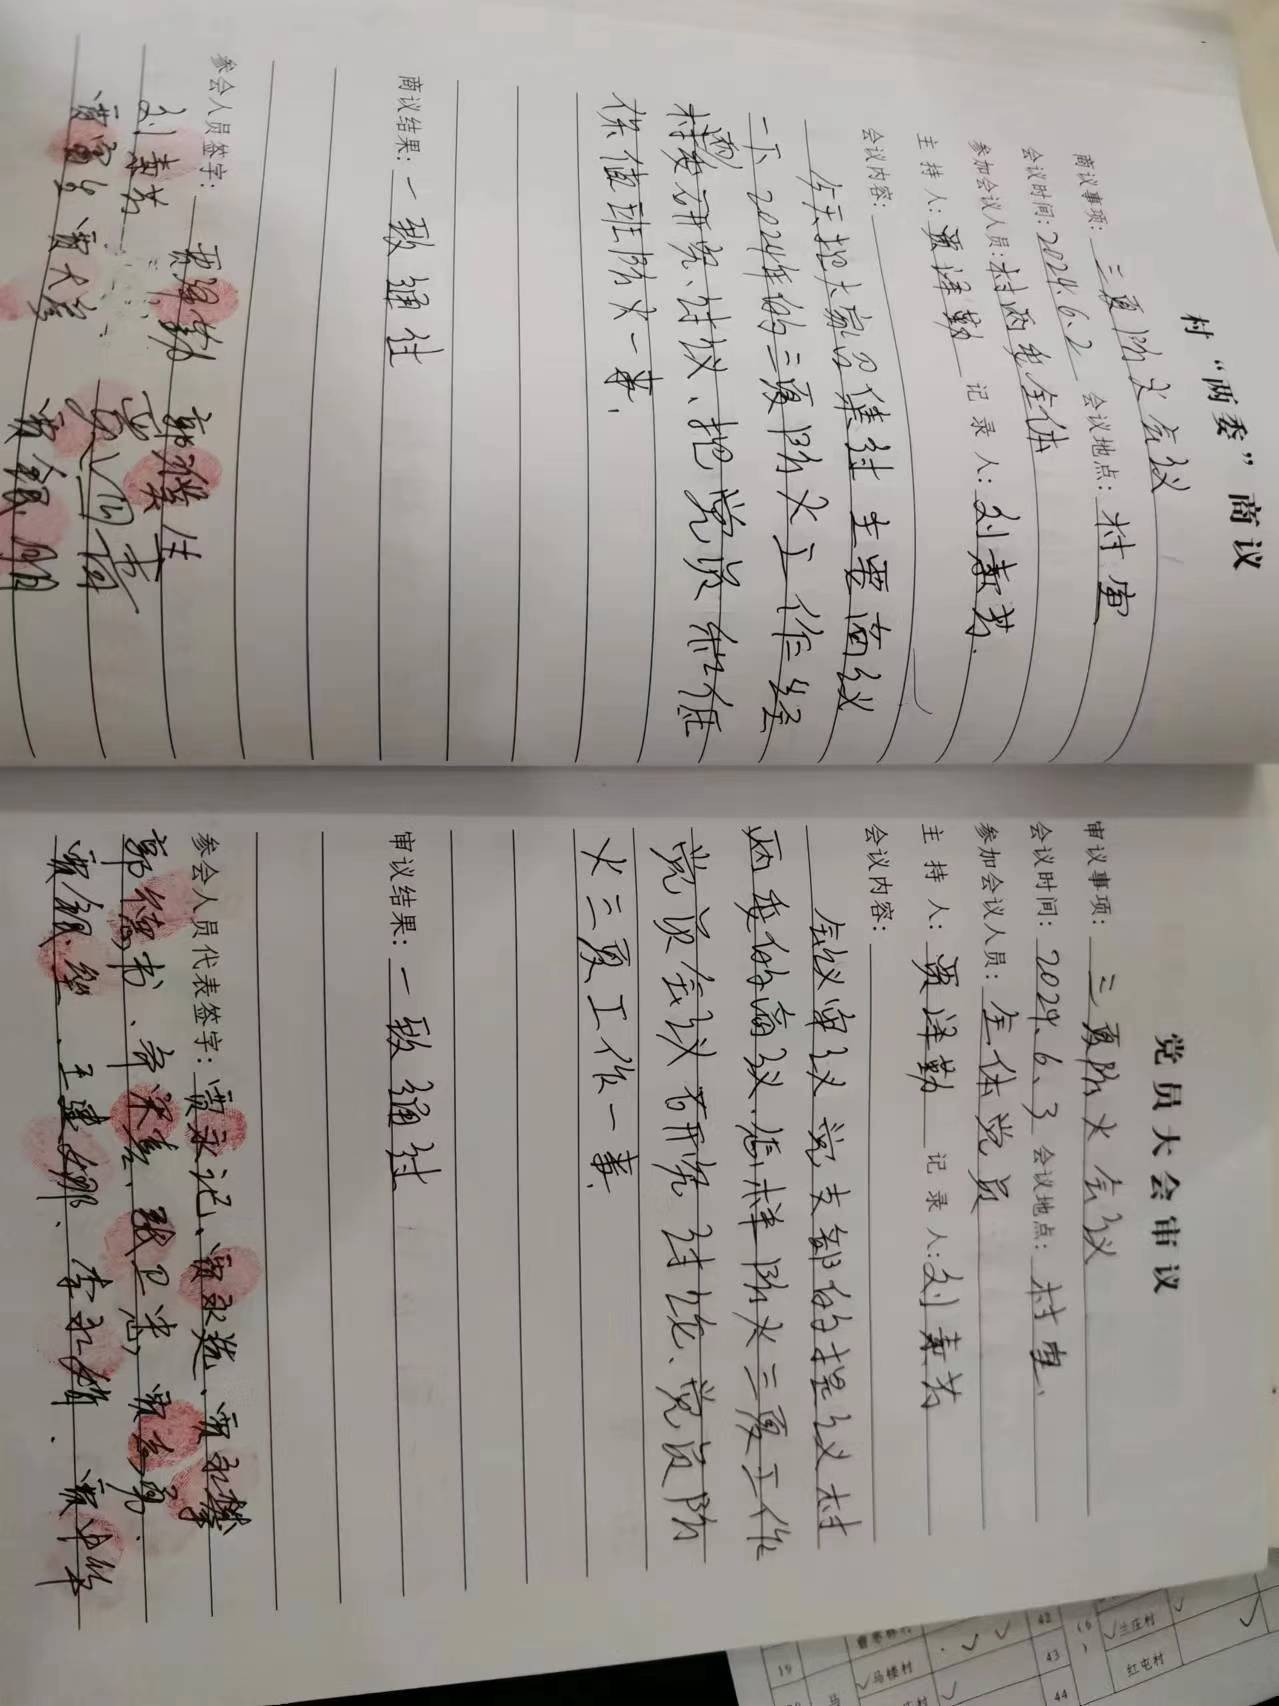 村“两委”商议
商议事项：三夏防火会议
会议时间：2024.6.2 会议地点：村室
参加会议人员：村两委全体
主持人：贾泽勤 记录人：刘素芳.
会议内容：
今天把大家召集过主要商议
一下2024年的三夏防火工作经
村两委研究、讨议、把党员和任
保值班防火一事.
商议结果：一致通过
参会人员签字：贾泽勤 郭
刘素芳
贾大
贾银朋
党员大会审议
审议事项：三夏防火会议
会议时间：2024.6.3 会议地点：村室.
参加会议人员：全体党员
主持人：贾泽勤 记录人：刘素芳
会议内容：
会议审议党支部的提议村
两委的商议.怎样防火三夏工作
党员会议有研究讨论、党员防
火三夏工作一事.
审议结果：一致通过
参会人员代表签字：贾永记、贾永选、贾永攀
郭德书、张卫忠、贾
贾银、王建娜、李
42
19
马楼村
43
兰庄村
红屯村
44